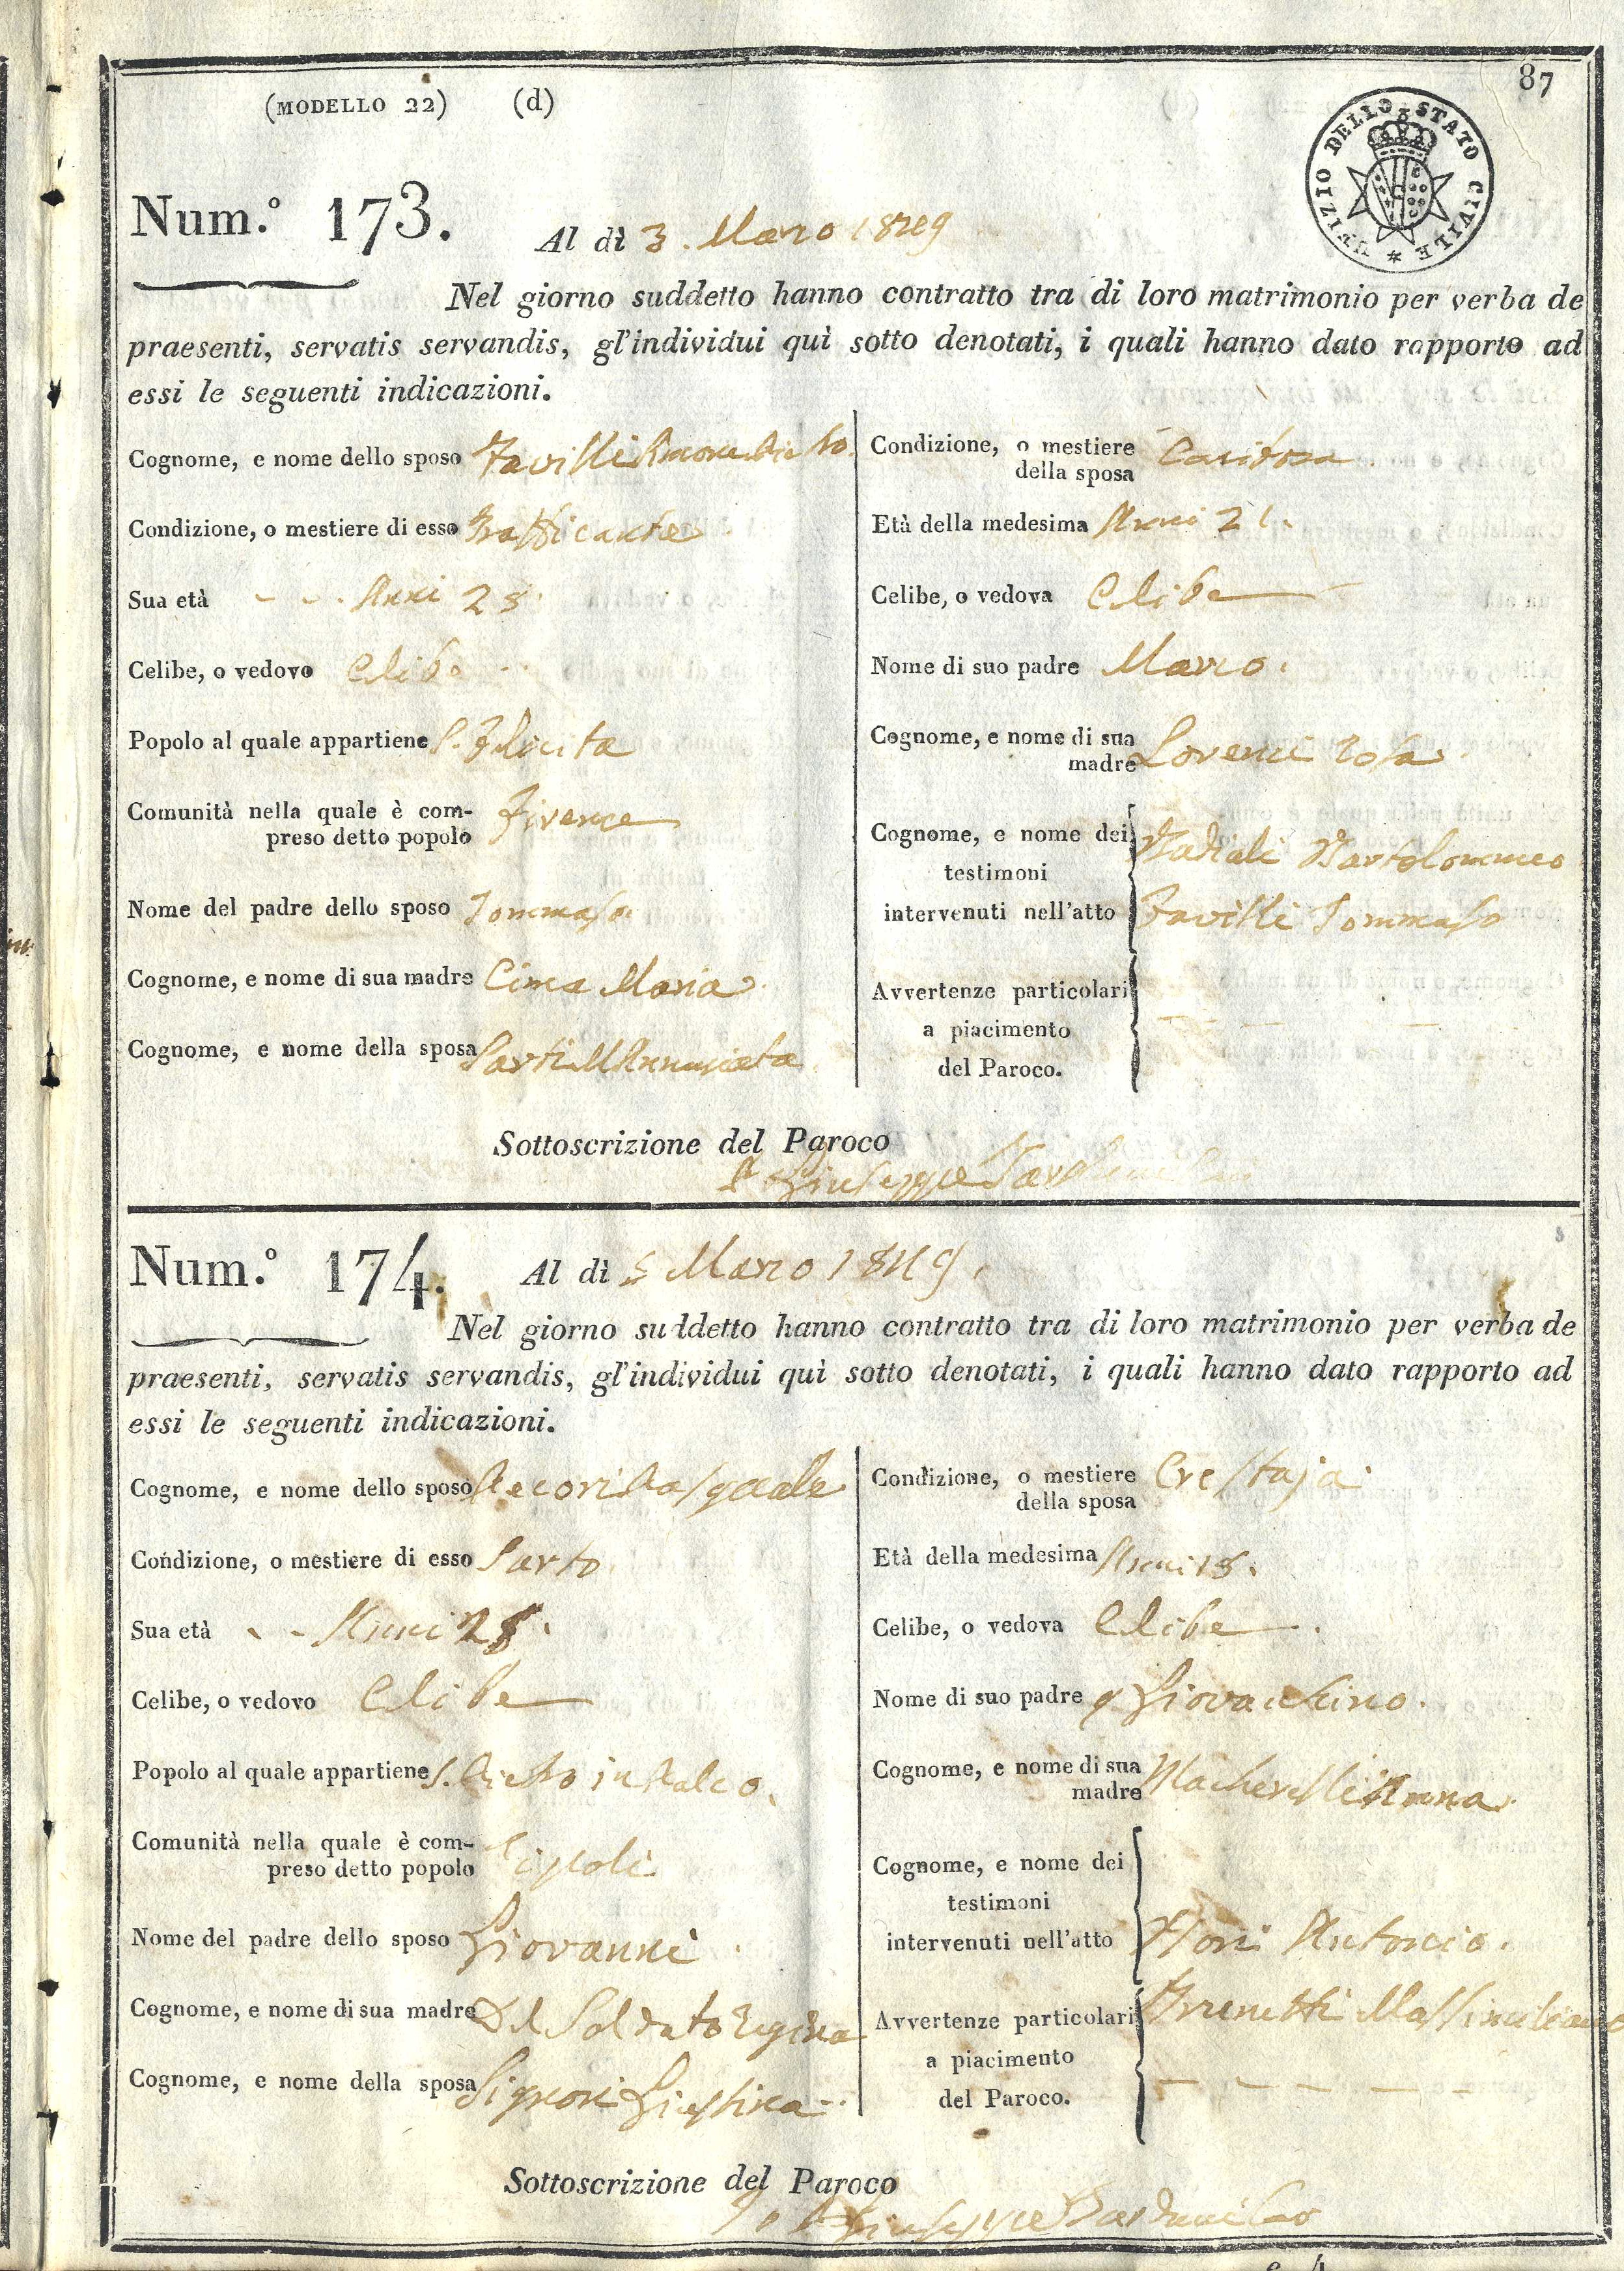 87
(MODELLO 22) (d)
UFIZIO DELLO STATO CIVILE *
Num.º 173.
Al dì 3. Marzo 1849
Nel giorno suddetto hanno contratto tra di loro matrimonio per verba de
praesenti, servatis servandis, gl'individui quì sotto denotati, i quali hanno dato rapporto ad
essi le seguenti indicazioni.
Cognome, e nome dello sposo Favilli
Condizione, o mestiere di esso Trafficante
Sua età - - . Anni 28.
Celibe, o vedovo Celibe
Popolo al quale appartiene S. Felicita
Comunità nella quale è com-
preso detto popolo Firenze
Nome del padre dello sposo Tommaso
Cognome, e nome di sua madre Cima Maria
Cognome, e nome della sposa Sarti M Annunziata
Condizione, o mestiere
della sposa
Età della medesima Anni 21.
Celibe, o vedova Celibe
Nome di suo padre
Cognome, e nome di sua
madre Lorenzi Rosa
Cognome, e nome dei
testimoni
intervenuti nell'atto
Bartolommeo
Favilli Tommaso
Avvertenze particolari
a piacimento
del Paroco.
Sottoscrizione del Paroco
Giuseppe
Num.º 174.
Al dì 5 Marzo 1849.
Nel giorno suddetto hanno contratto tra di loro matrimonio per verba de
praesenti, servatis servandis, gl'individui quì sotto denotati, i quali hanno dato rapporto ad
essi le seguenti indicazioni.
Cognome, e nome dello sposo Pecori Pasquale
Condizione, o mestiere di esso Sarto
Sua età - - Anni 28.
Celibe, o vedovo Celibe
Popolo al quale appartiene S. Piero in Palco.
Comunità nella quale è com-
preso detto popolo Ripoli
Nome del padre dello sposo Giovanni
Cognome, e nome di sua madre Del Soldato Regina
Cognome, e nome della sposa Signori Giustina
Condizione, o mestiere
della sposa Crestaja
Età della medesima Anni 18.
Celibe, o vedova Celibe
Nome di suo padre q Giovacchino.
Cognome, e nome di sua
madre Macherelli Anna
Cognome, e nome dei
testimoni
intervenuti nell'atto
Antonio.
Brunetti Massimiliano
Avvertenze particolari
a piacimento
del Paroco.
Sottoscrizione del Paroco
Giuseppe